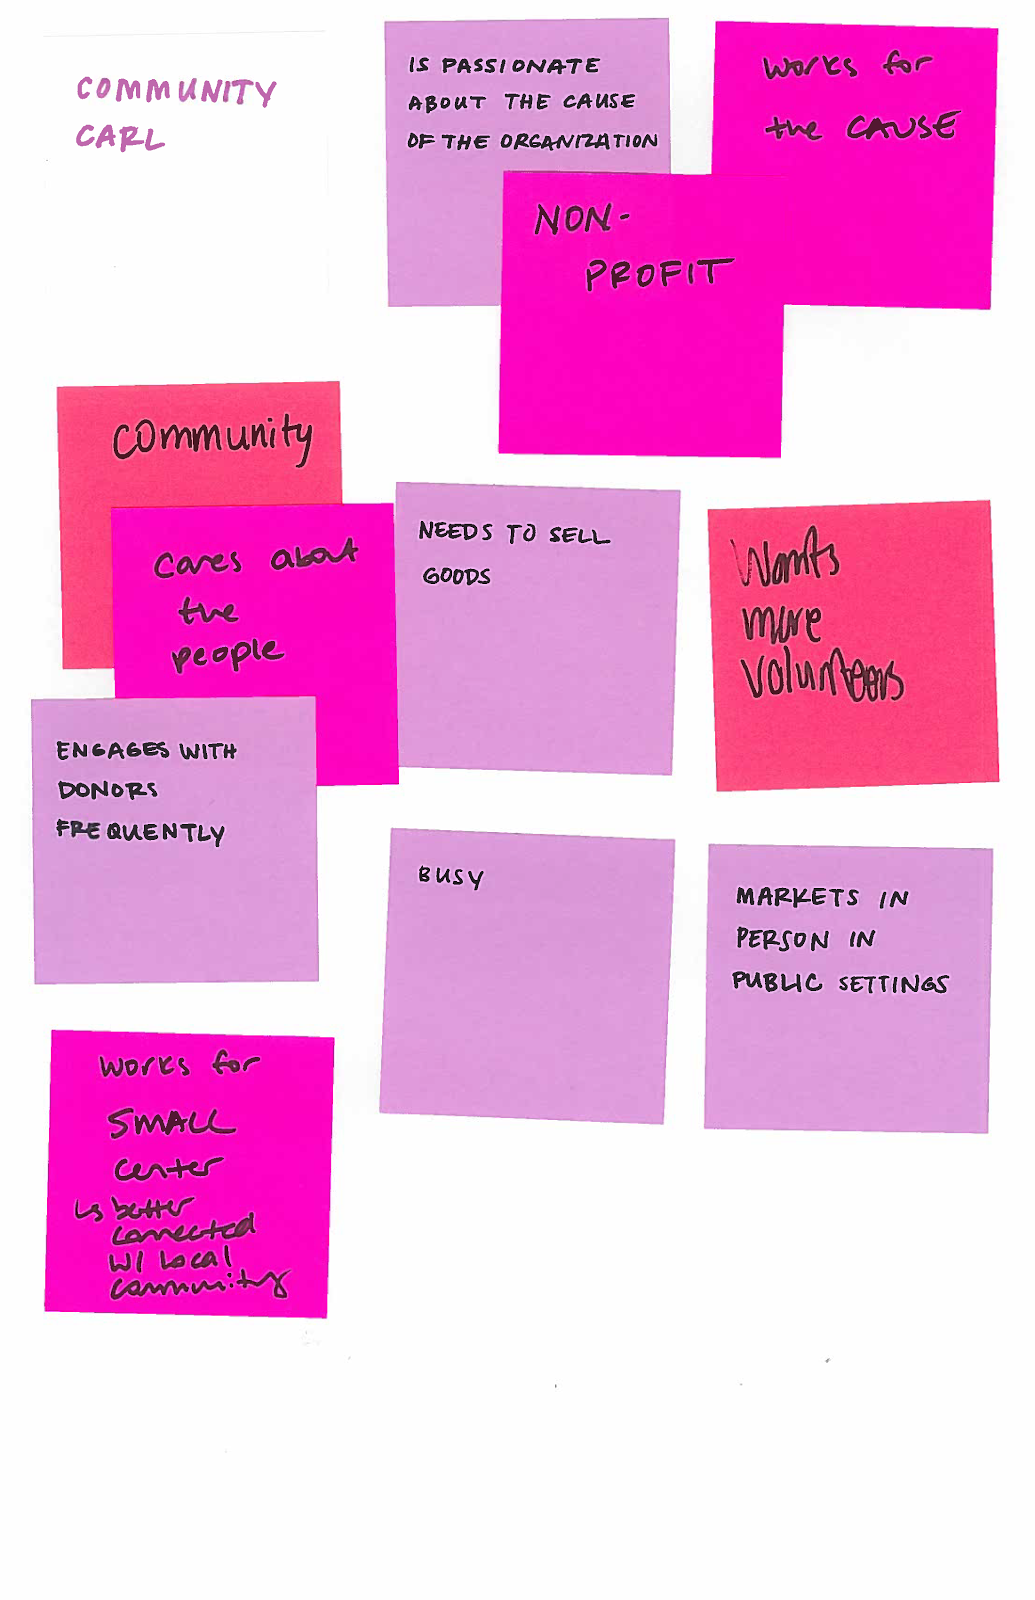 COMMUNITY
CARL
IS PASSIONATE
ABOUT THE CAUSE
OF THE ORGANIZATION
works for
the CAUSE
NON-
PROFIT
community
cares about
the
people
ENGAGES WITH
DONORS
FREQUENTLY
NEEDS TO SELL
GOODS
Wants
more
volunteers
BUSY
MARKETS IN
PERSON IN
PUBLIC SETTINGS
works for
SMALL
center
↳ better
connected
w/ local
community